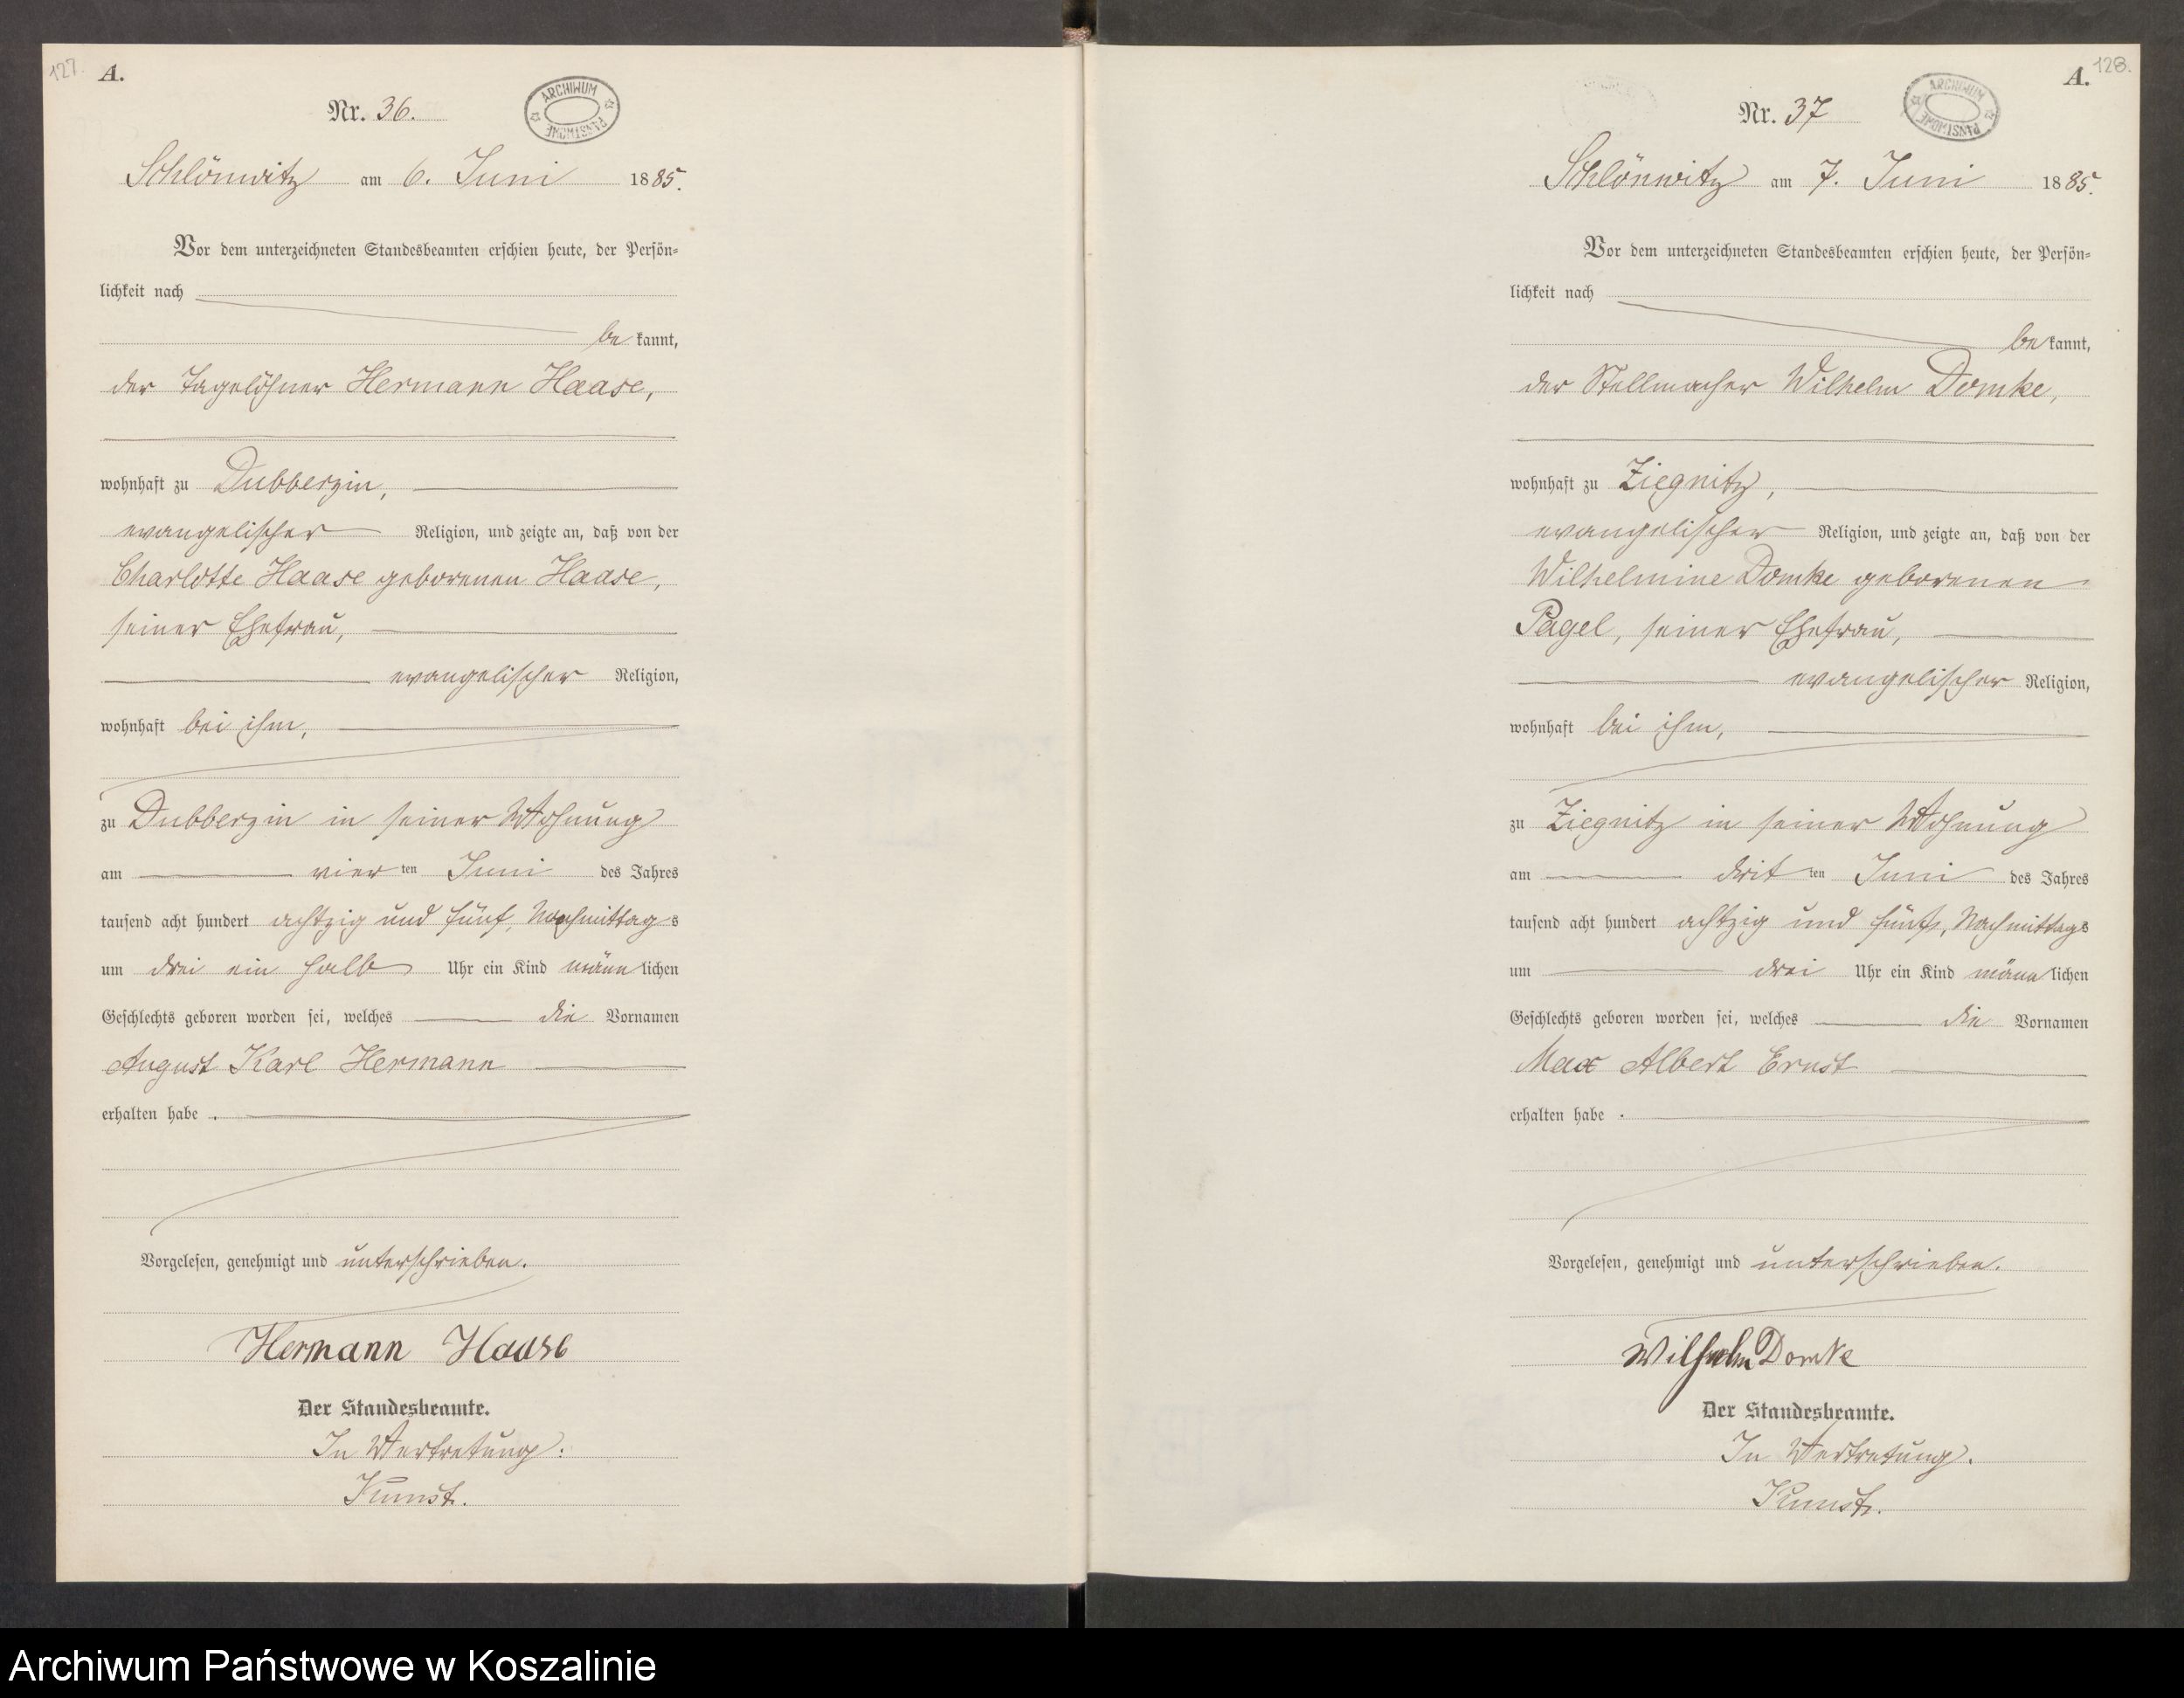 127.
A.
Nr. 36.
ARCHIWUM PAŃSTWOWE
Schlönwitz am 6. Juni 1885.
Vor dem unterzeichneten Standesbeamten erschien heute, der Persön-
lichkeit nach
bekannt,
der Tagelöhner Hermann Haase,
wohnhaft zu Dubberzin,
evangelischer Religion, und zeigte an, daß von der
Charlotte Haase geborenen Haase,
seiner Ehefrau,
evangelischer Religion,
wohnhaft bei ihm,
zu Dubberzin in seiner Wohnung
am vierten Juni des Jahres
tausend acht hundert achtzig und fünf, Nachmittags
um drei ein halb Uhr ein Kind männlichen
Geschlechts geboren worden sei, welches die Vornamen
August Karl Hermann
erhalten habe.
Vorgelesen, genehmigt und unterschrieben.
Hermann Haase
Der Standesbeamte.
In Vertretung:
Kunst.
128.
A.
Nr. 37
ARCHIWUM PAŃSTWOWE
Schlönwitz am 7. Juni 1885.
Vor dem unterzeichneten Standesbeamten erschien heute, der Persön-
lichkeit nach
bekannt,
der Stellmacher Wilhelm Domke,
wohnhaft zu Ziegnitz,
evangelischer Religion, und zeigte an, daß von der
Wilhelmine Domke geborenen
Pagel, seiner Ehefrau,
evangelischer Religion,
wohnhaft bei ihm,
zu Ziegnitz in seiner Wohnung
am dritten Juni des Jahres
tausend acht hundert achtzig und fünf, Nachmittags
um drei Uhr ein Kind männlichen
Geschlechts geboren worden sei, welches die Vornamen
Max Albert Ernst
erhalten habe.
Vorgelesen, genehmigt und unterschrieben.
Wilhelm Domke
Der Standesbeamte.
In Vertretung.
Kunst.
Archiwum Państwowe w Koszalinie